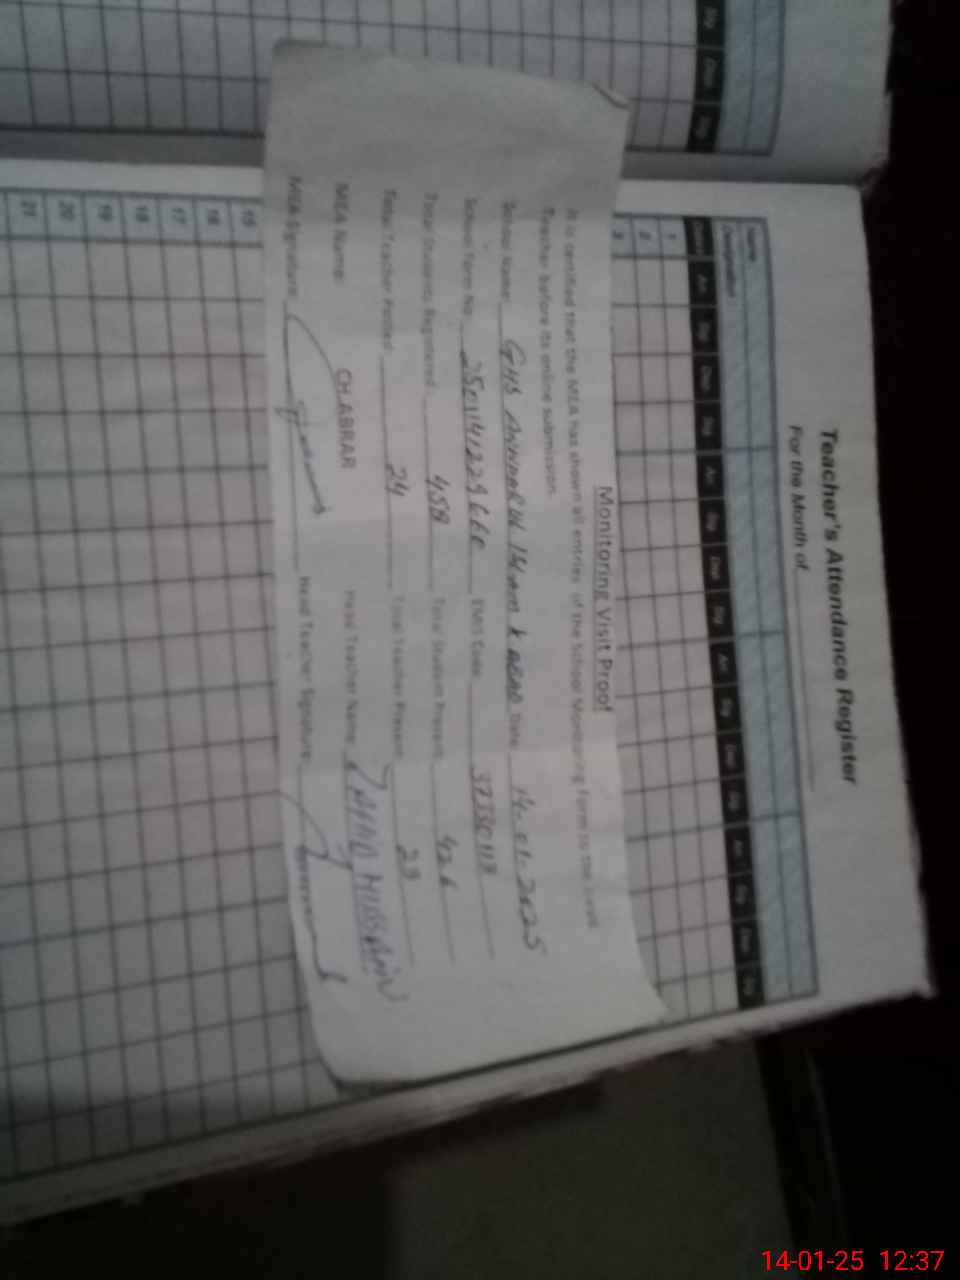 Teacher's Attendance Register
For the Month of
Name
Designation
Dates Arr. Sig Dep Sig Arr. Sig Dep Sig Arr. Sig Dep Sig Arr. Sig Dep Sig
1
2
3
Monitoring Visit Proof
It is certified that the MEA has shown all entries of the School Monitoring Form to the Head
Teacher before its online submission.
School Name: GHS Date: 14-01-2025
School Form No. EMIS Code 37330113
Total Students Registered 458 Total Student Present 426
Total Teacher Posted 24 Total Teacher Present 23
MEA Name: CH.ABRAR Head Teacher Name HUSSAIN
MEA Signature Head Teacher Signature
15
16
17
18
19
20
21
14-01-25 12:37